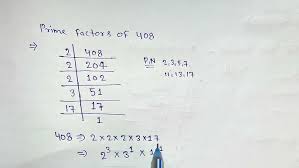 Prime factors of 408
⇒
2 | 408
2 | 204
2 | 102
3 | 51
17 | 17
1
P.N 2,3,5,7
11,13,17
408 ⇒ 2×2×2×3×17
⇒ 2³ × 3¹ ×